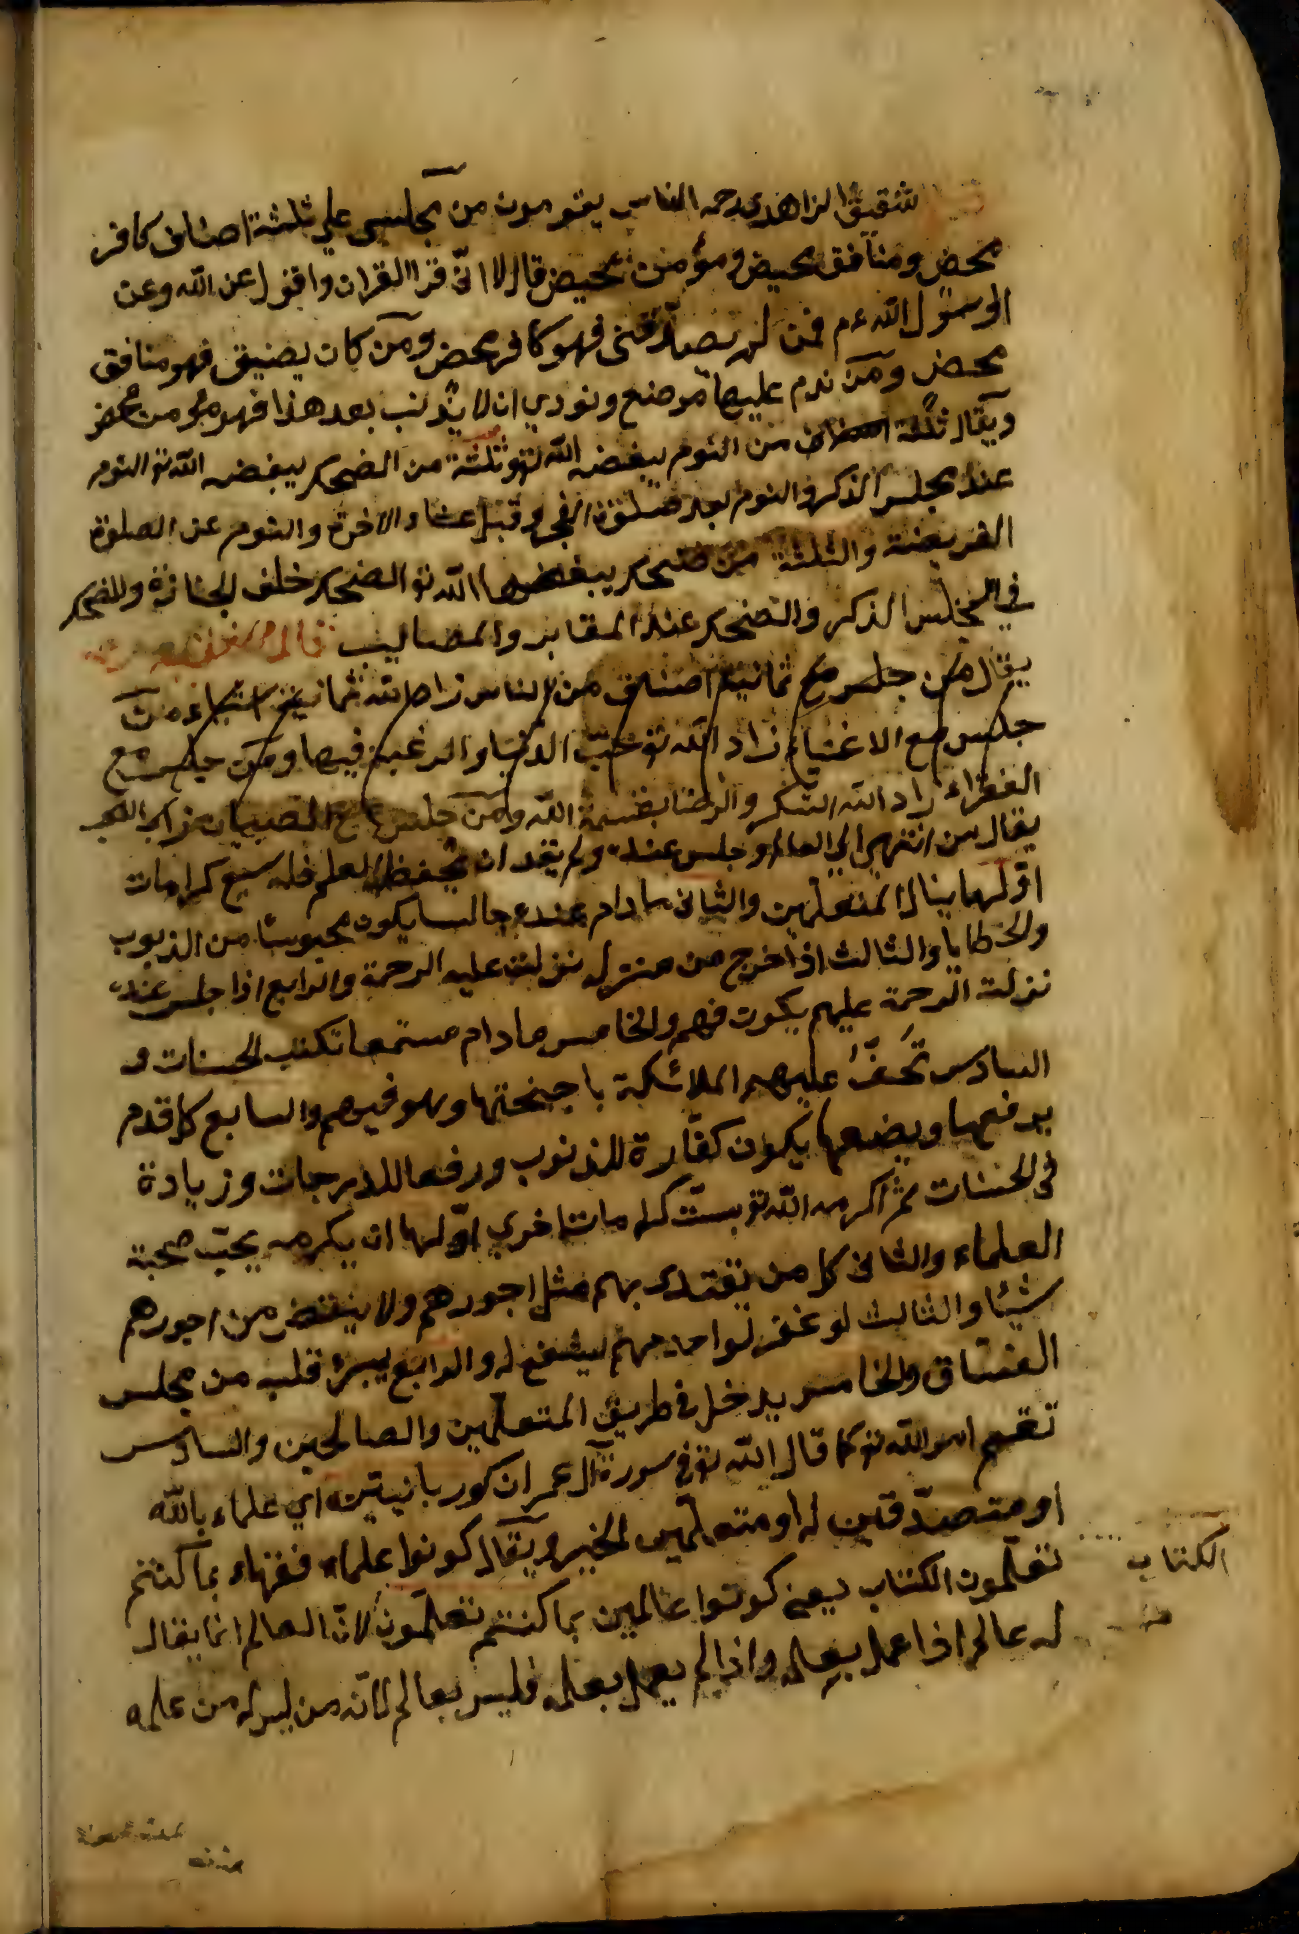 شقيق الزاهدى رحمه الناس يقومون من مجلسى على ثلثة اصناف كافر
محض ومنافق محيض ومؤمن محيض قال لا انّى قرا القران واقول عن الله وعن
الرسول الله عم فمن لم يصدّقنى فهو كافر محض ومن كان يضيق فهو منافق
محض ومن ندم عليها مر صنع ونودي ان لا يذنب بعد هذا فهو مؤمن محض
ويقال ثلثة اصناف من النوم يبغضه الله تع وثلثة من الضحك يبغضه الله تع النوم
عند مجلس الذكر والنوم بعد صلوة الفجر وقبل عشاء الاخرة والنوم عن الصلوة
الفريضة والثلثة من ضحك يبغضها الله تع الضحك خلف الجنازة والضحك
فى المجلس الذكر والضحك عند المقابر والمصاليب
يقال من جلس مع ثمانية اصناف من الناس زاد الله ثمانية اشياء من
جلس مع الاغنياء زاد الله تع حبّ الدنيا والرغبة فيها ومن جلس مع
الفقراء زاد الله الشكر والرضا بقسمة الله ومن جلس مع الصبيان
يقال من انتهى الي العالم وجلس عنده ولم يقد ان يحفظ العلم فله سبع كرامات
اوّلها ينال المتعلّمين والثانى مادام عنده جالسا يكون محبوسا من الذنوب
والخطايا والثالث اذا خرج من منزله نزلت عليه الرحمة والرابع اذا جلس عنده
نزلت الرحمة عليهم يكون فيهم والخامس مادام مستمعا تكتب الحسنات و
السادس تحفّ عليهم الملائكة باجنحتها وهو فيهم والسابع كل قدم
يرفعها ويضعها يكون كفّارة للذنوب ورفعا للدرجات وزيادة
فى الحسنات ثم اكرمه الله تع بستّ كرامات اخرى اوّلها ان يكرمه بحبّ صحبة
العلماء والثانى كل من يقتدى بهم مثل اجورهم ولا ينقض من اجورهم
شيئا والثالث لو غفر لواحد منهم ليشفع له والرابع يبرؤ قلبه من مجلس
الفسّاق والخامس يدخل فى طريق المتعلّمين والصالحين والسادس
تقسم امر الله تع كما قال الله تع فى سورة آل عمران كو ربانيّين اي علماء بالله
او متصدّقين له او متعلّمين الخير ويقال كونوا علماء ففهاء بما كنتم
تعلّمون الكتاب يعنى كونوا عالمين بما كنتم تعلّمون لانّ العالم انما يقال
له عالم اذا عمل بعلمه واذا لم يعمل بعلمه فليس بعالم لانّه من ليس له من علمه
الكتاب